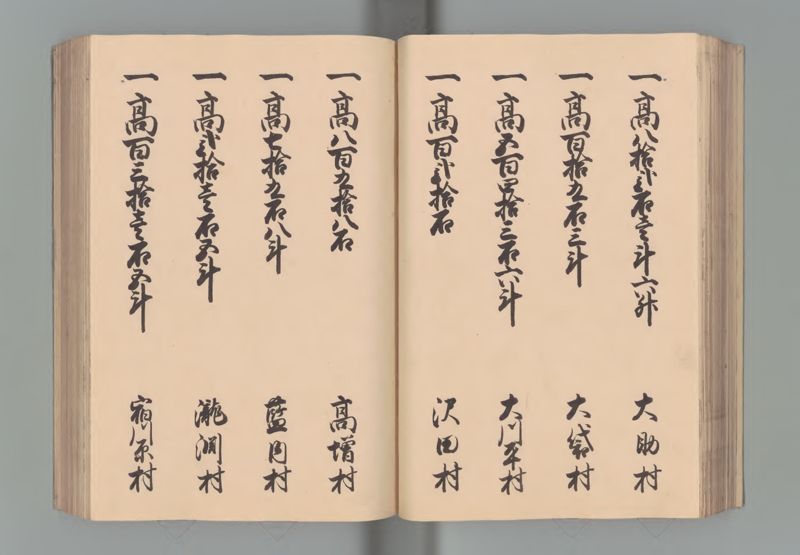 一高八拾弐石壱斗六升 大助村
一高百拾九石三斗 大袋村
一高五百四拾三石六斗 大川平村
一高百弐拾石 沢田村
一高八百九拾八石 高増村
一高七拾九石八斗 藍内村
一高弐拾壱石五斗 瀧渕村
一高百三拾壱石五斗 宿川原村